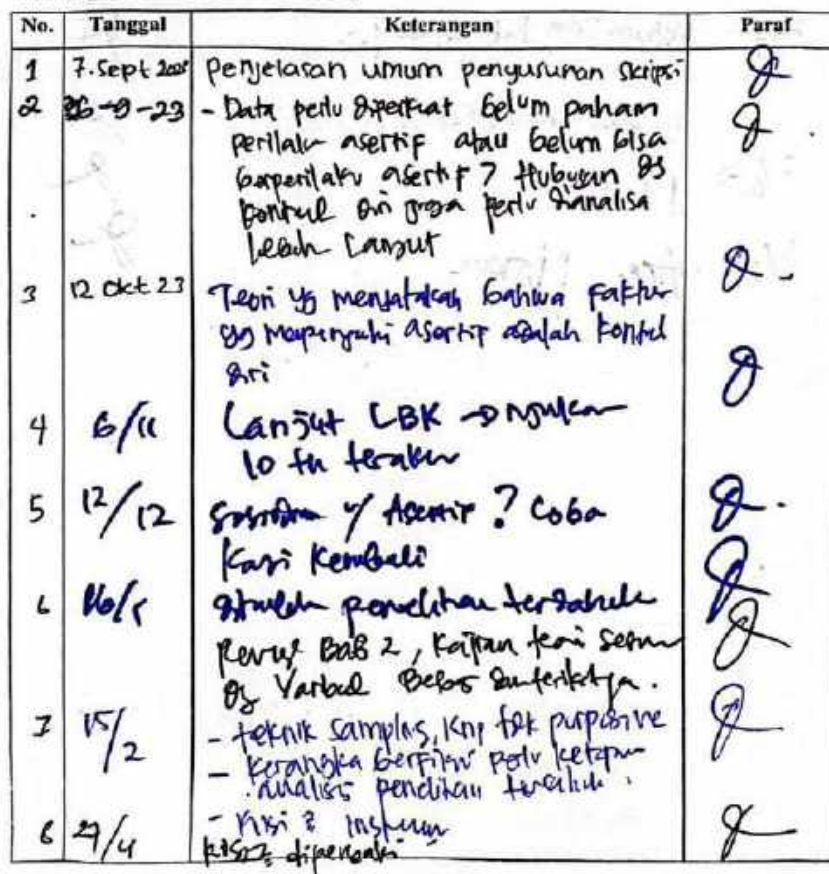 No. Tanggal Keterangan Paraf
1 7. Sept penjelasan umum penyusunan skripsi
2 26-9-23 - Data perlu diperkuat belum paham
perilaku asertif atau belum bisa
berperilaku asertif? Hubungan dg
kontrol diri juga perlu dianalisa
lebih lanjut
3 12 Okt 23 Teori yg menyatakan bahwa faktor
yg mempengaruhi asertif adalah kontrol
diri
4 6/11 Lanjut LBK →
10 th terakhir
5 12/12 Asertif? Coba
Kembali
6 penelitian terdahulu
Revisi BAB 2, Kajian teori sesuai
dg Variabel Bebas
7 15/2 - teknik sampling, knp tdk purposive
- Kerangka berfikir perlu
analisis penelitian terdahulu.
8 27/4 - Kisi 2 instrumen
diperbaiki